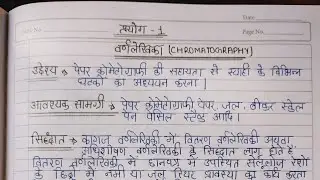 Date
Page No.
प्रयोग - 1
वर्णलेखिकी (CHROMATOGRAPHY)
उद्देश्य → पेपर क्रोमेटोग्राफी की सहायता से स्याही के विभिन्न
घटकों का अध्ययन करना।
आवश्यक सामग्री → पेपर क्रोमेटोग्राफी पेपर, जल, बीकर स्केल
पेन पेंसिल स्टैण्ड आदि।
सिद्धांत → कागज वर्णलेखिकी में वितरण वर्णलेखिकी अथवा
अधिशोषण वर्णलेखिकी के सिद्धांत लागू होते हैं
वितरण वर्णलेखिकी में छानपत्र में उपस्थित सेलुलोज रेशों
के छिद्रों में नमी या जल स्थिर प्रावस्था का कार्य करता